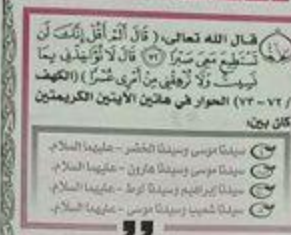 قال الله تعالى: ﴿ قَالَ أَلَمْ أَقُلْ إِنَّكَ لَن
تَسْتَطِيعَ مَعِيَ صَبْرًا ﴿٧٢﴾ قَالَ لَا تُؤَاخِذْنِي بِمَا
نَسِيتُ وَلَا تُرْهِقْنِي مِنْ أَمْرِي عُسْرًا ﴾ (الكهف
/ ٧٢ - ٧٣) الحوار في هاتين الآيتين الكريمتين
كان بين:
سيدنا موسى وسيدنا الخضر - عليهما السلام.
سيدنا موسى وسيدنا هارون - عليهما السلام.
سيدنا إبراهيم وسيدنا لوط - عليهما السلام.
سيدنا شعيب وسيدنا موسى - عليهما السلام.